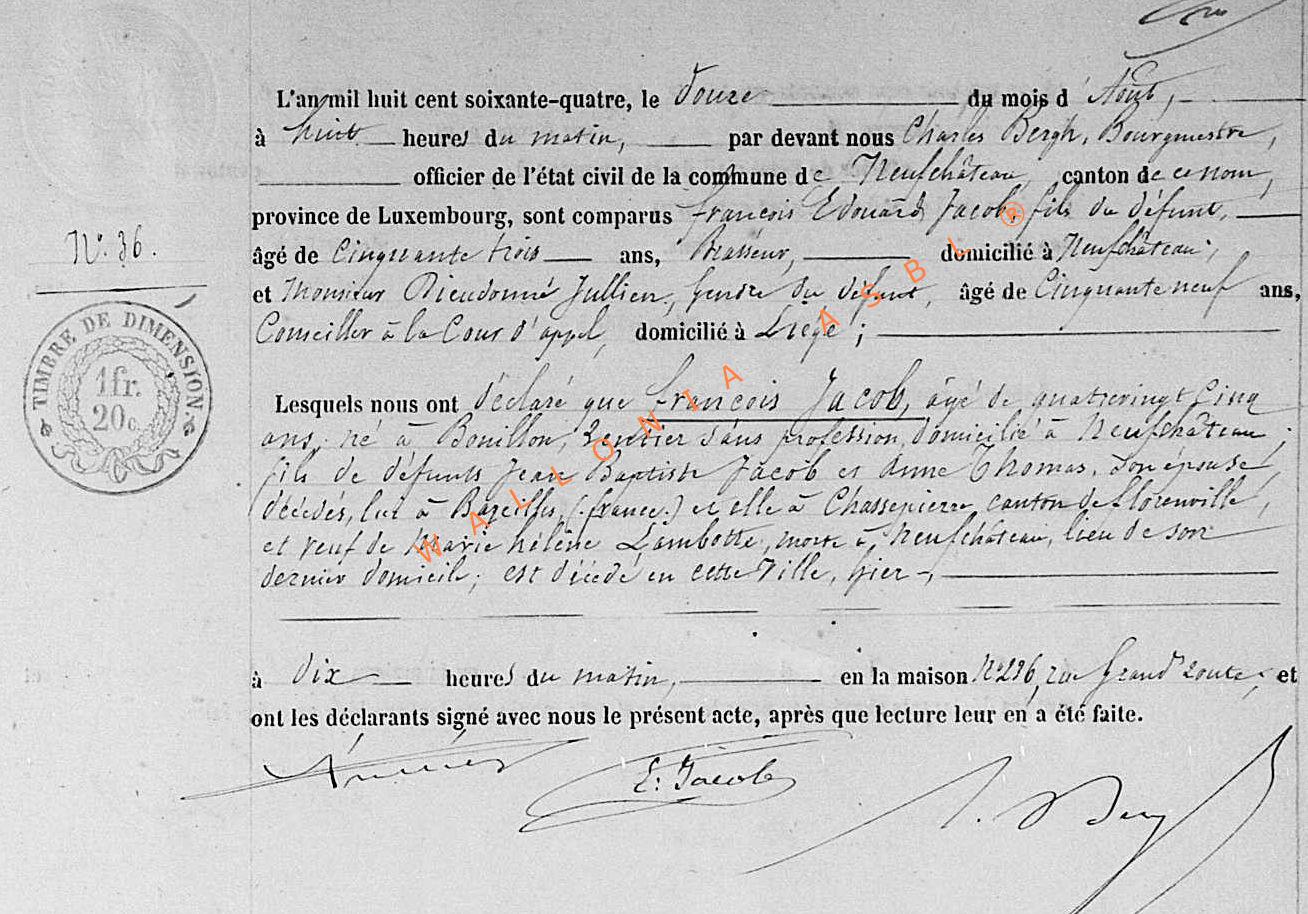 L'an mil huit cent soixante-quatre, le Douze du mois d'Août,
à huit heures du matin, par devant nous Charles Bergh, Bourgmestre,
officier de l'état civil de la commune de Neufchâteau, canton de ce nom,
province de Luxembourg, sont comparus François Edouard Jacob, fils du défunt,
N.° 36.
âgé de Cinquante trois ans, Brasseur, domicilié à Neufchâteau;
et Monsieur Dieudonné Jullien, gendre du défunt, âgé de Cinquante neuf ans,
Conseiller à la Cour d'appel, domicilié à Liège;
TIMBRE DE DIMENSION.
1fr.
20c.
Lesquels nous ont déclaré que François Jacob, âgé de quatrevingt Cinq
ans, né à Bouillon, Rentier sans profession, domicilié à Neufchâteau;
fils de défunts Jean Baptiste Jacob et Anne Thomas, son épouse,
décédés, lui à Bazeilles, (france.) et elle à Chassepierre, canton de florenville,
et veuf de Marie hélène Lambotte, morte à Neufchâteau, lieu de son
dernier domicile; est décédé en cette Ville, hier,
à dix heures du matin, en la maison N° 286, rue Grand' route, et
ont les déclarants signé avec nous le présent acte, après que lecture leur en a été faite.
E. Jacob
WALLONIA ASBL ®